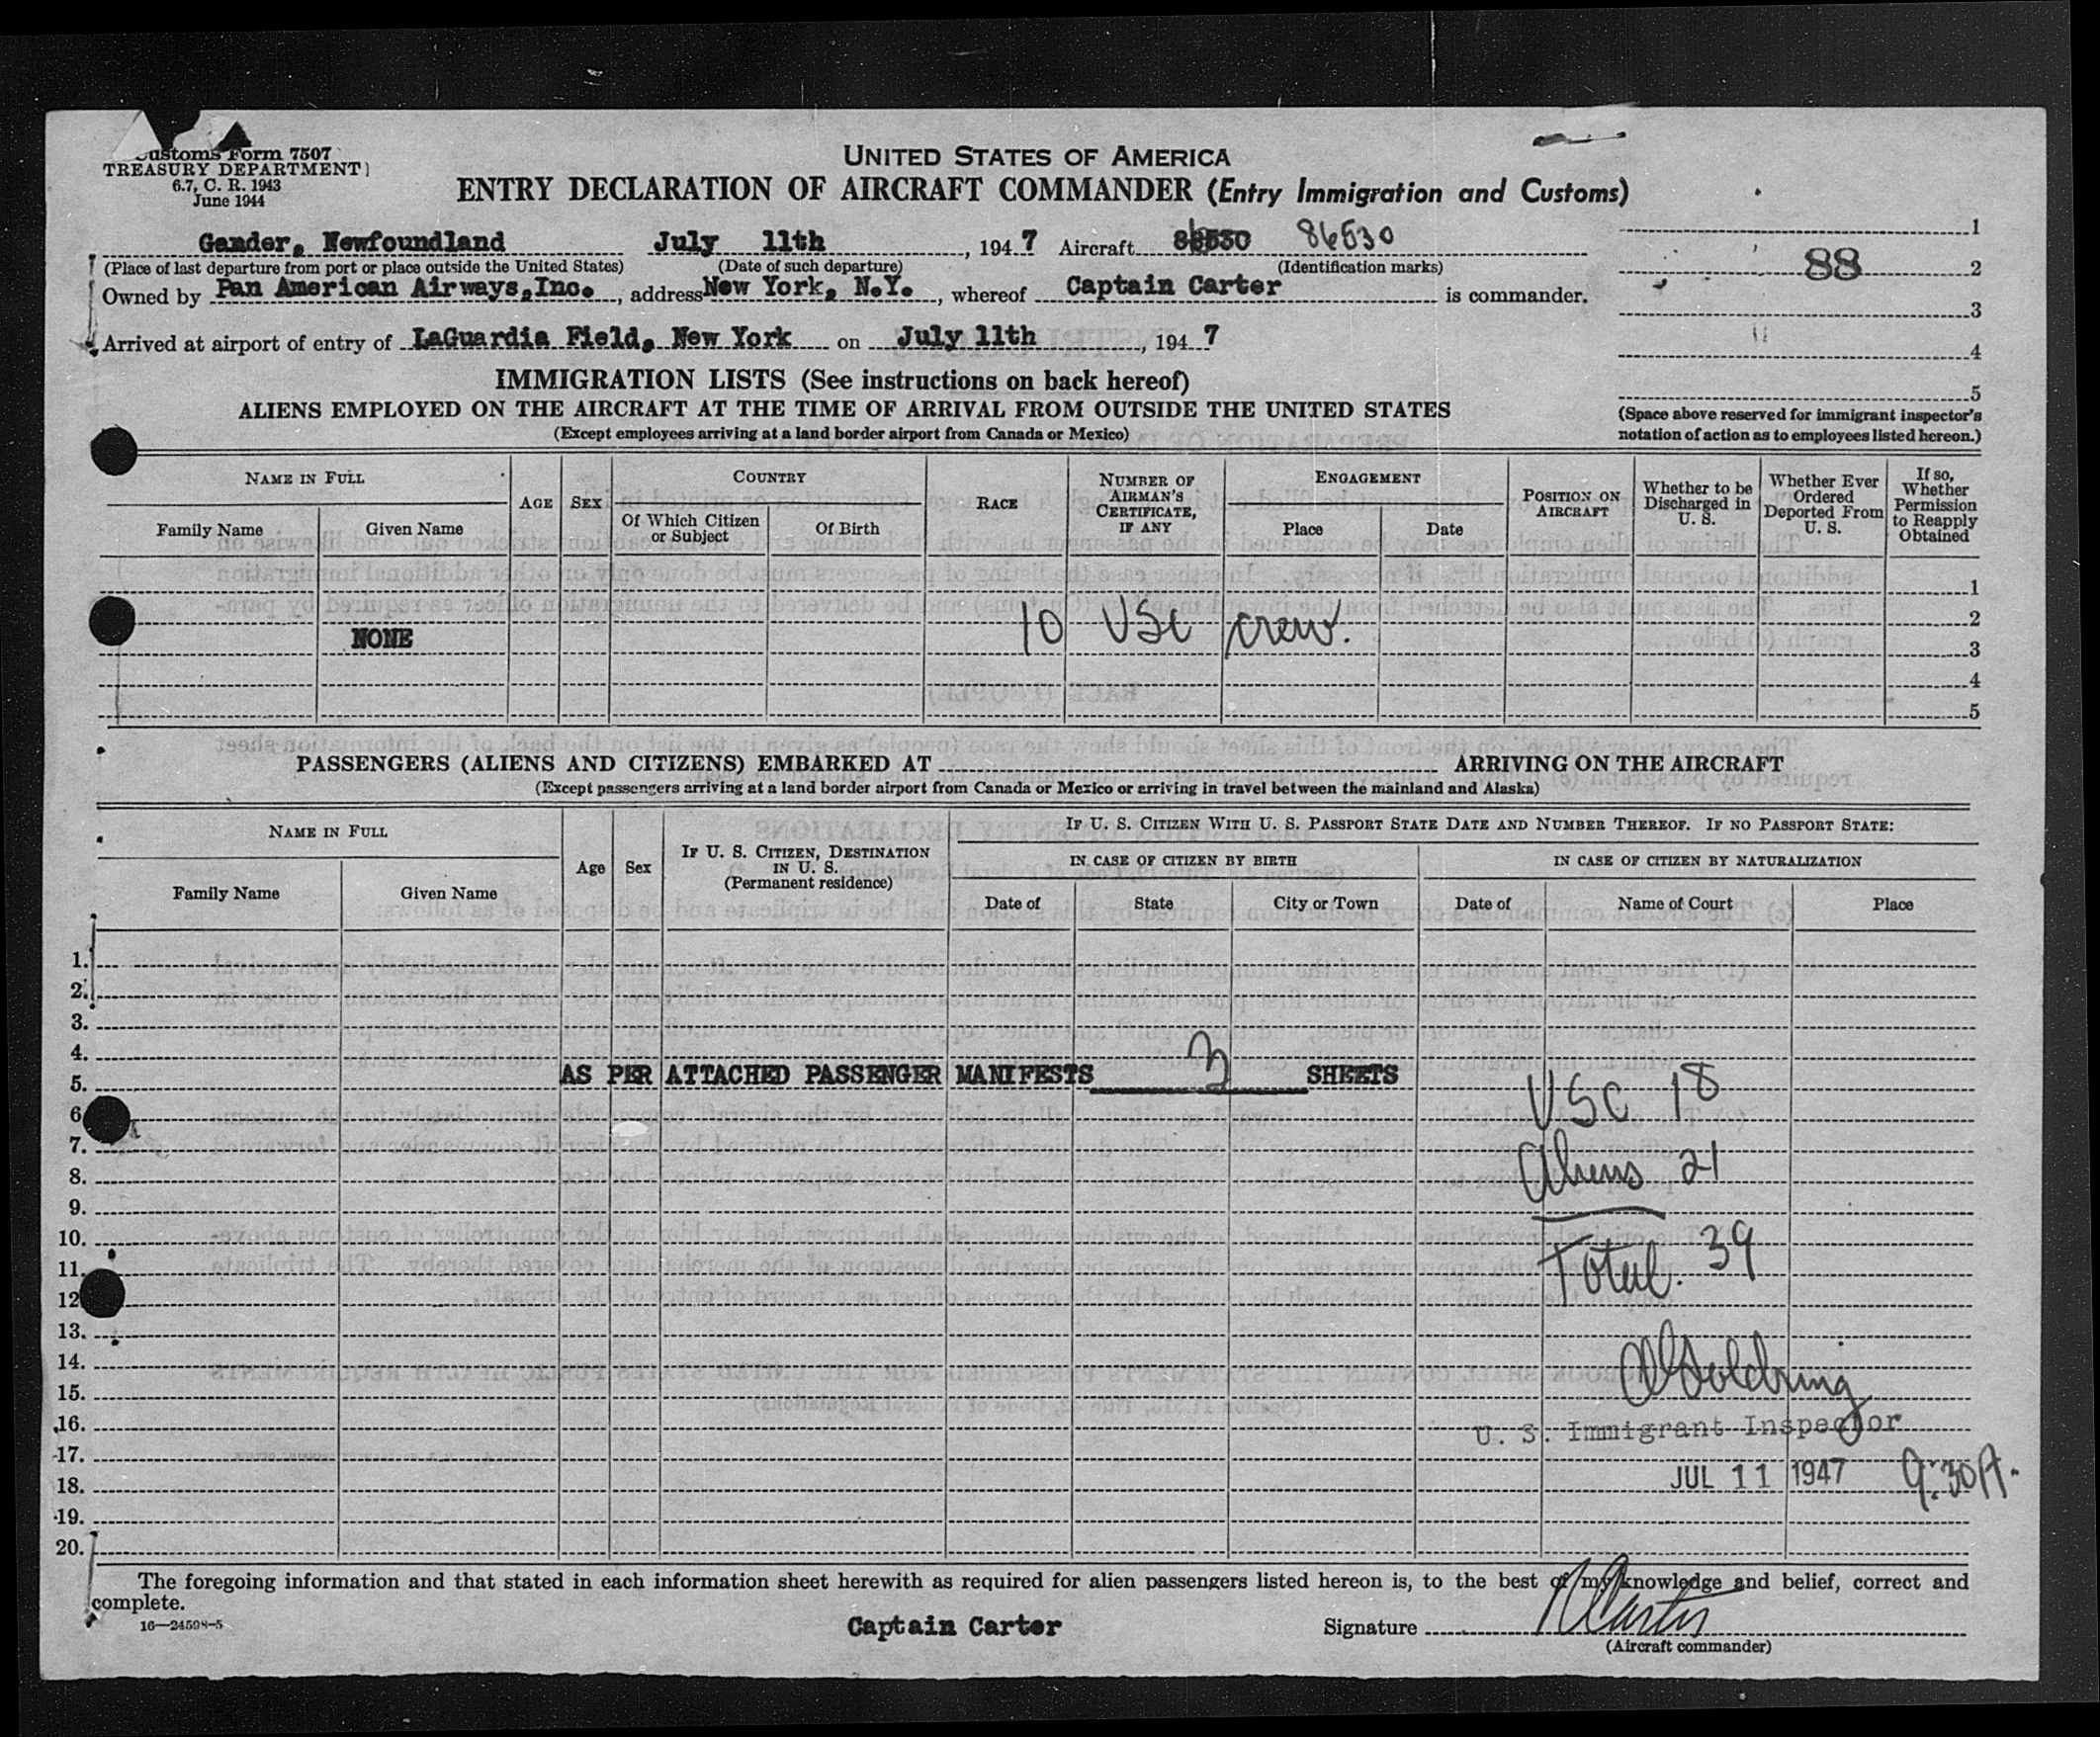 Customs Form 7507
TREASURY DEPARTMENT
6.7, C. R. 1943
June 1944
UNITED STATES OF AMERICA
ENTRY DECLARATION OF AIRCRAFT COMMANDER (Entry Immigration and Customs)
Gander, Newfoundland July 11th, 1947 Aircraft 86530 86530
(Place of last departure from port or place outside the United States) (Date of such departure) (Identification marks)
Owned by Pan American Airways, Inc., address New York, N.Y., whereof Captain Carter is commander.
Arrived at airport of entry of LaGuardia Field, New York on July 11th, 1947
1
88 2
3
4
5
(Space above reserved for immigrant inspector's notation of action as to employees listed hereon.)
IMMIGRATION LISTS (See instructions on back hereof)
ALIENS EMPLOYED ON THE AIRCRAFT AT THE TIME OF ARRIVAL FROM OUTSIDE THE UNITED STATES
(Except employees arriving at a land border airport from Canada or Mexico)
NAME IN FULL
Family Name Given Name
AGE SEX
COUNTRY
Of Which Citizen or Subject Of Birth
RACE
NUMBER OF AIRMAN'S CERTIFICATE, IF ANY
ENGAGEMENT
Place Date
POSITION ON AIRCRAFT
Whether to be Discharged in U. S.
Whether Ever Ordered Deported From U. S.
If so, Whether Permission to Reapply Obtained
1
2
NONE 10 USC crew. 3
4
5
PASSENGERS (ALIENS AND CITIZENS) EMBARKED AT ARRIVING ON THE AIRCRAFT
(Except passengers arriving at a land border airport from Canada or Mexico or arriving in travel between the mainland and Alaska)
NAME IN FULL
Family Name Given Name
Age Sex
IF U. S. CITIZEN, DESTINATION IN U. S. (Permanent residence)
IF U. S. CITIZEN WITH U. S. PASSPORT STATE DATE AND NUMBER THEREOF. IF NO PASSPORT STATE:
IN CASE OF CITIZEN BY BIRTH IN CASE OF CITIZEN BY NATURALIZATION
Date of State City or Town Date of Name of Court Place
1.
2.
3.
4.
5. AS PER ATTACHED PASSENGER MANIFESTS 3 SHEETS
6 USC 18
7.
8. Aliens 21
9.
10.
11. Total. 39
12
13.
14.
15.
16. U. S. Immigrant Inspector
17.
18. JUL 11 1947 9:30A.
19.
20.
The foregoing information and that stated in each information sheet herewith as required for alien passengers listed hereon is, to the best of my knowledge and belief, correct and
complete.
16—24598-5
Captain Carter Signature Carter
(Aircraft commander)